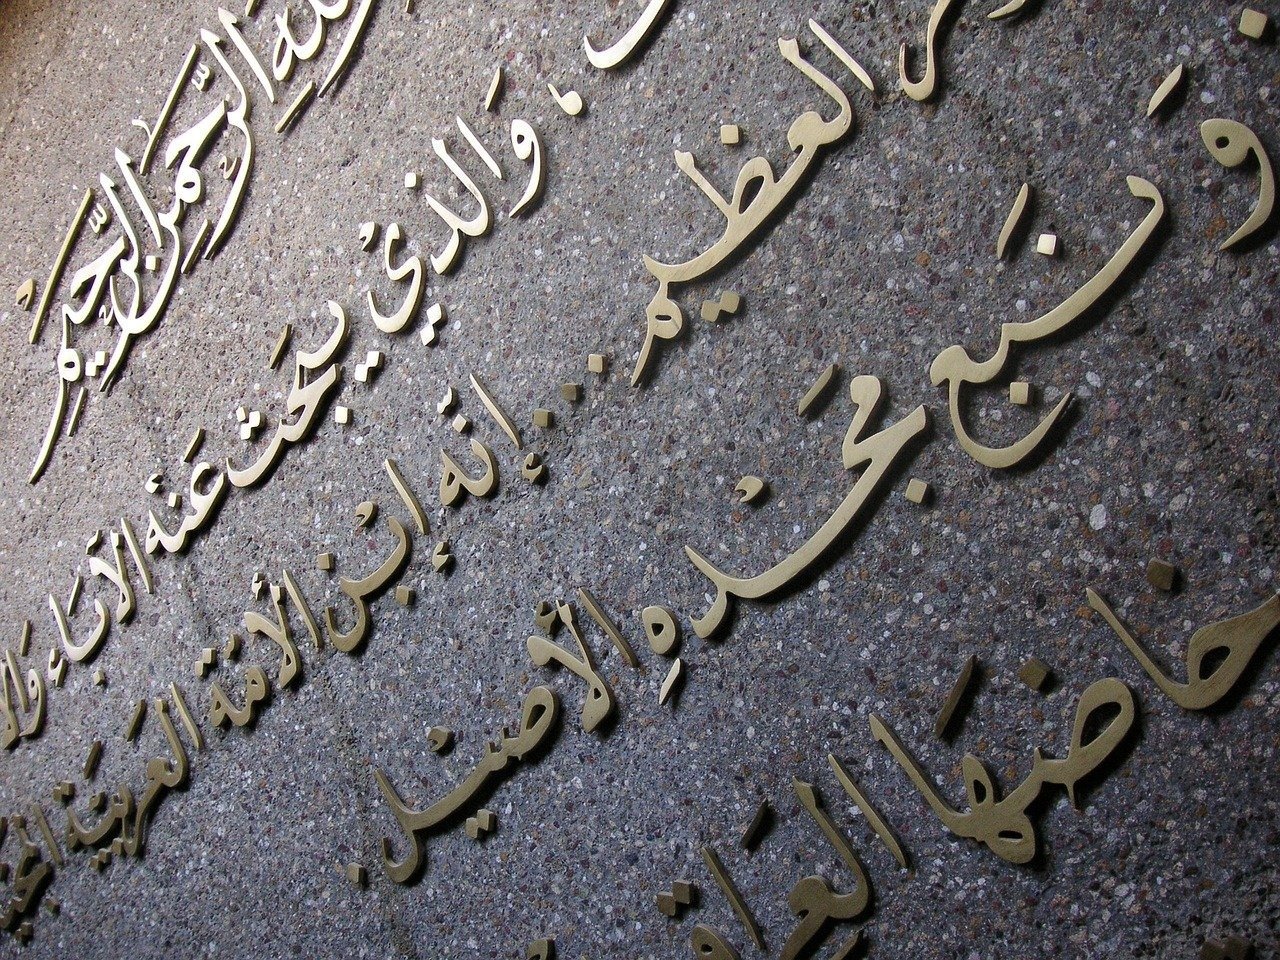 الله الرَّحمٰنِ الرَّحِيمِ
وَالذيْ يبحَث عَنْه الآبَاء
العظيم ... إنّه ابْن الأمّة العَربيّة
و نَبع مَجْدهِ الأصيْل.
مَاضيهَا